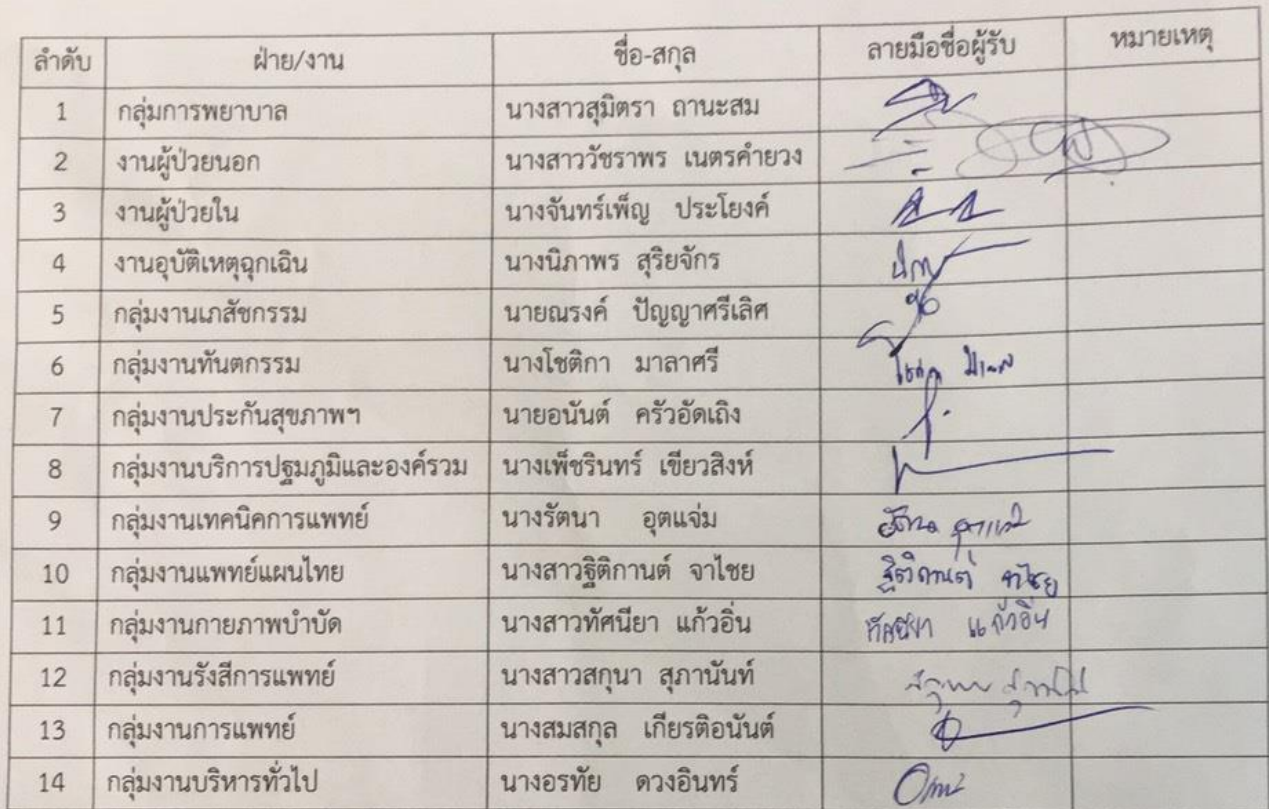 ลำดับ ฝ่าย/งาน ชื่อ-สกุล ลายมือชื่อผู้รับ หมายเหตุ
1 กลุ่มการพยาบาล นางสาวสุมิตรา ถานะสม
2 งานผู้ป่วยนอก นางสาววัชราพร เนตรคำยวง
3 งานผู้ป่วยใน นางจันทร์เพ็ญ ประโยงค์
4 งานอุบัติเหตุฉุกเฉิน นางนิภาพร สุริยจักร
5 กลุ่มงานเภสัชกรรม นายณรงค์ ปัญญาศรีเลิศ
6 กลุ่มงานทันตกรรม นางโชติกา มาลาศรี
7 กลุ่มงานประกันสุขภาพฯ นายอนันต์ ครัวอัดเถิง
8 กลุ่มงานบริการปฐมภูมิและองค์รวม นางเพ็ชรินทร์ เขียวสิงห์
9 กลุ่มงานเทคนิคการแพทย์ นางรัตนา อุตแจ่ม
10 กลุ่มงานแพทย์แผนไทย นางสาวฐิติกานต์ จาไชย ฐิติกานต์ จาไชย
11 กลุ่มงานกายภาพบำบัด นางสาวทัศนียา แก้วอิ่น ทัศนียา แก้วอิ่น
12 กลุ่มงานรังสีการแพทย์ นางสาวสกุนา สุภานันท์
13 กลุ่มงานการแพทย์ นางสมสกุล เกียรติอนันต์
14 กลุ่มงานบริหารทั่วไป นางอรทัย ดวงอินทร์